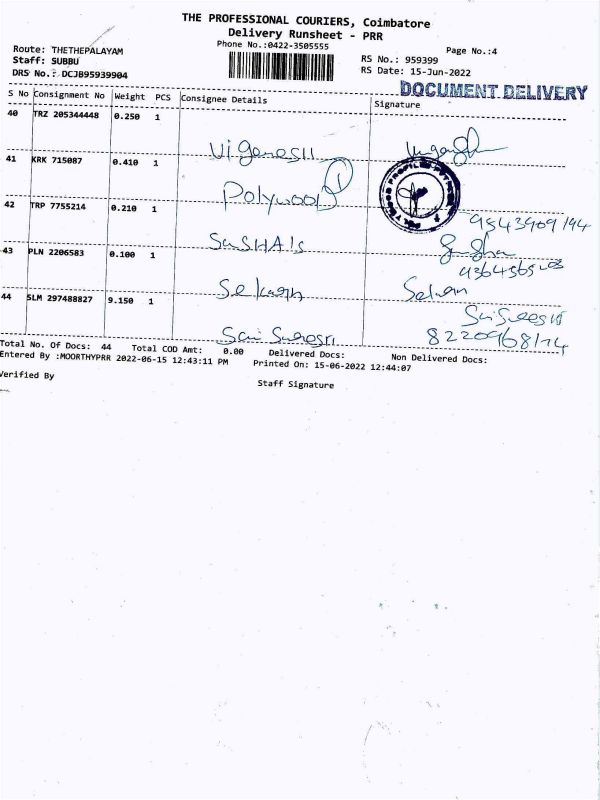 THE PROFESSIONAL COURIERS, Coimbatore
Delivery Runsheet - PRR
Phone No.:0422-3505555
Page No.:4
Route: THETHEPALAYAM
Staff: SUBBU
DRS No.: DCJB95939904
RS No.: 959399
RS Date: 15-Jun-2022
DOCUMENT DELIVERY
S No Consignment No Weight PCS Consignee Details Signature
40 TRZ 205344448 0.250 1
Viganesh
41 KRK 715087 0.410 1
Polywood
42 TRP 7755214 0.210 1
43 PLN 2206583 0.100 1
44 SLM 297488827 9.150 1
Sai Suresh
Total No. Of Docs: 44 Total COD Amt: 0.00 Delivered Docs: Non Delivered Docs:
Entered By :MOORTHYPRR 2022-06-15 12:43:11 PM Printed On: 15-06-2022 12:44:07
Verified By
Staff Signature